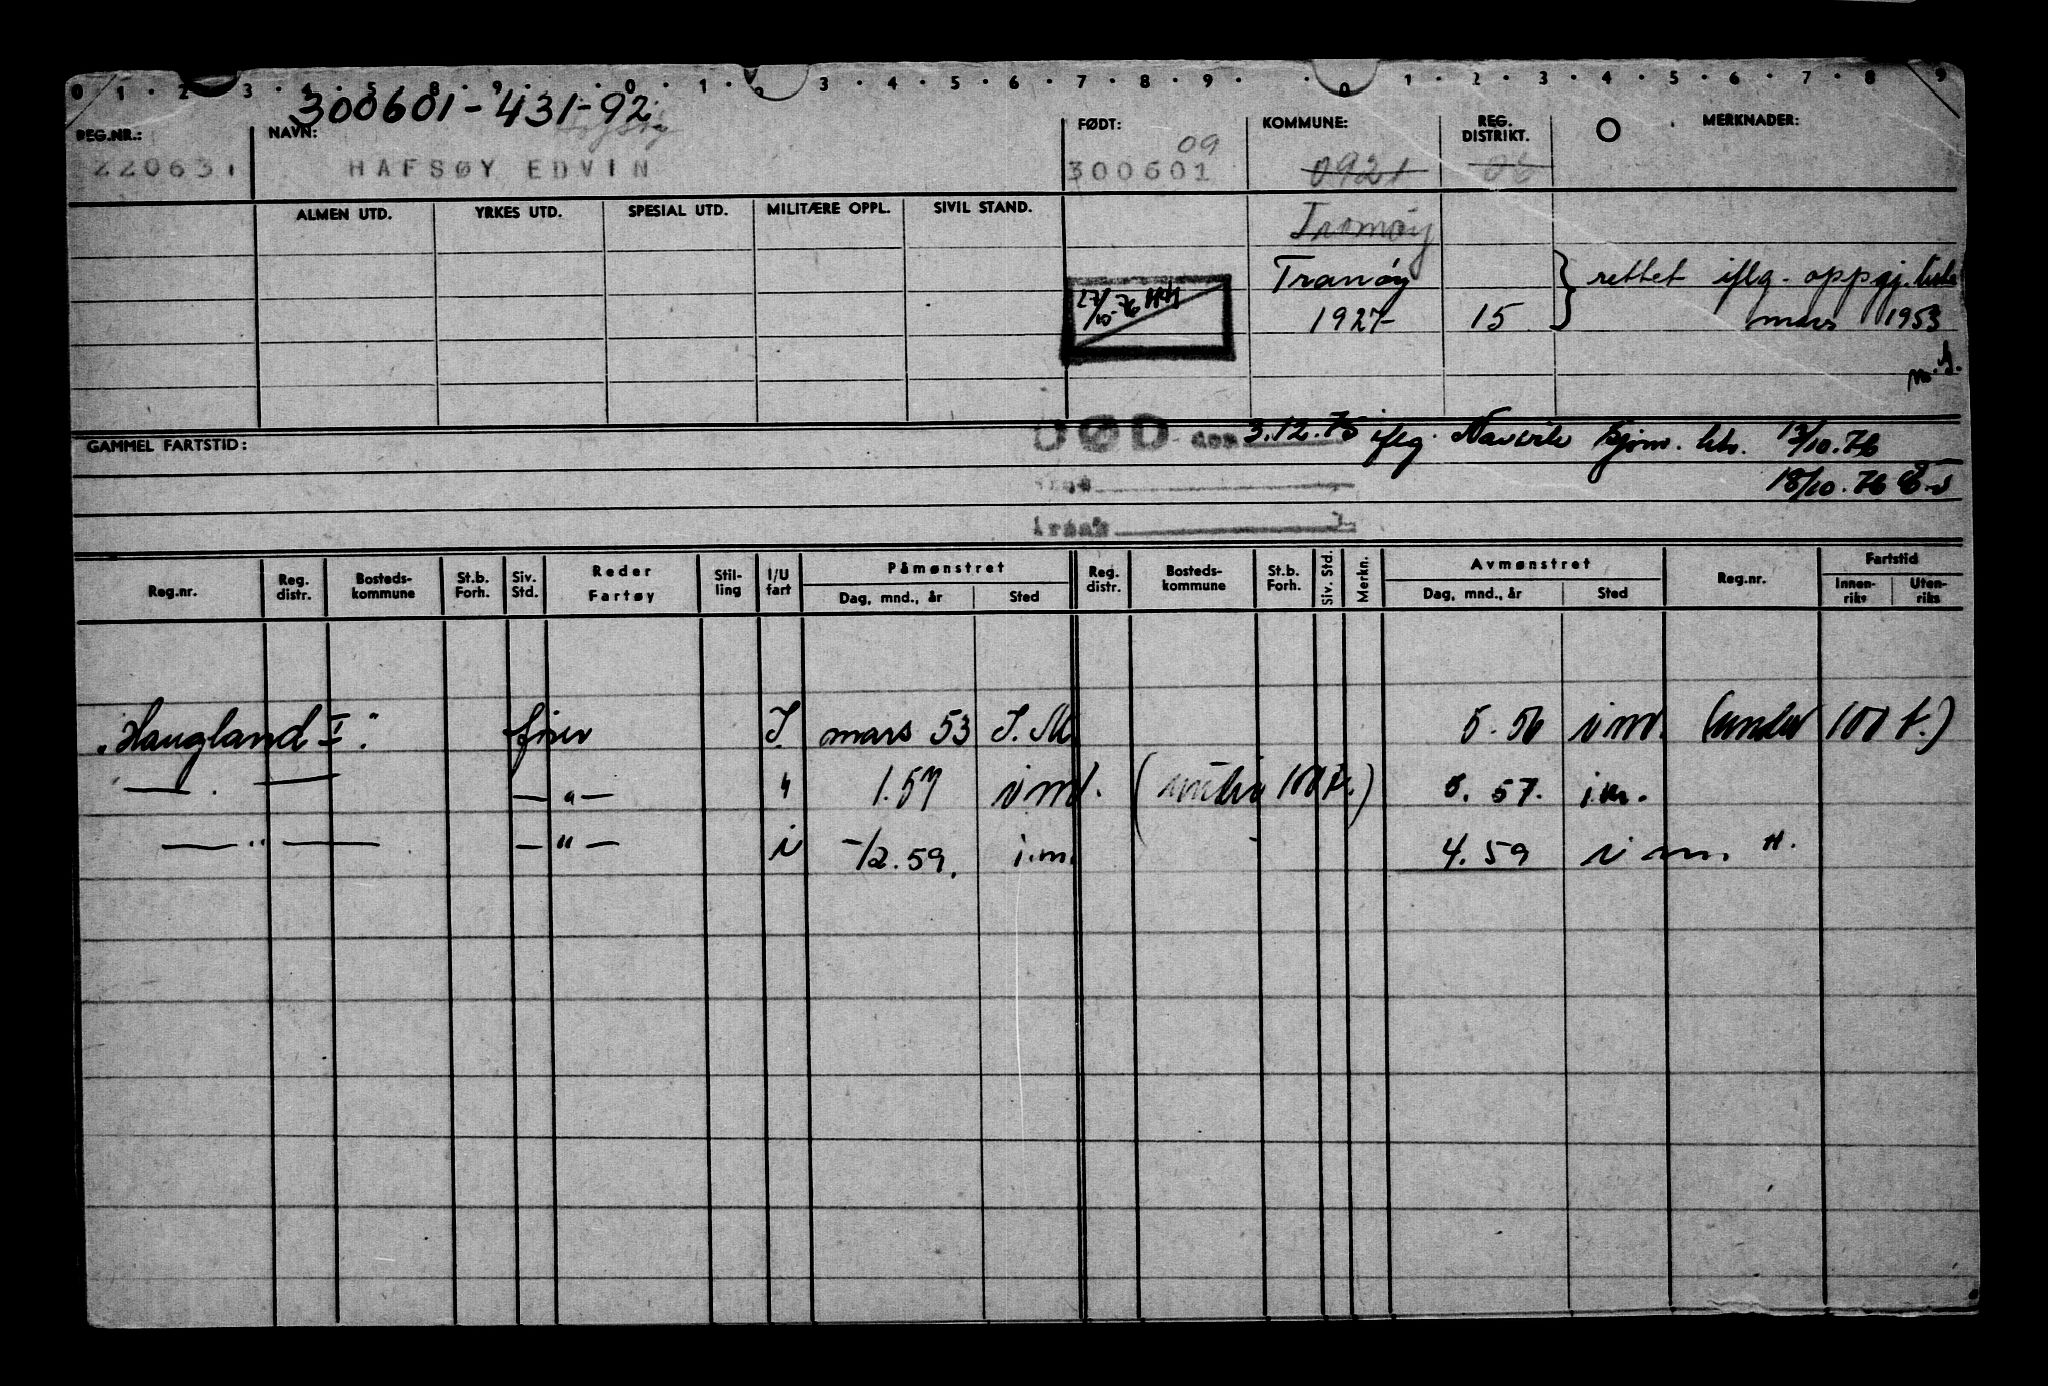 0 1 2 3 4 5 8 9 0 1 2 3 4 5 6 7 8 9 0 1 2 3 4 5 6 7 8 9
300601-431-92
REG.NR.: NAVN: FØDT: KOMMUNE: REG. DISTRIKT. MERKNADER:
09
220631 HAFSØY EDVIN 300601 0921 06
ALMEN UTD. YRKES UTD. SPESIAL UTD. MILITÆRE OPPL. SIVIL STAND.
Tromøy
Tranøy } rettet iflg. oppgj. liste
27/10-76 HH 1927 15 mars 1953
GAMMEL FARTSTID: DØD den 3.12.75 iflg. Narvik sjøm. ktr. 13/10.76
18/10.76
årsak
Reg.nr. Reg. distr. Bosteds-kommune St.b. Forh. Siv. Std. Reder Fartøy Stil-ling I/U fart Påmønstret Reg. distr. Bosteds-kommune St.b. Forh. Siv. Std. Merkn. Avmønstret Reg.nr. Fartstid
Dag, mnd., år Sted Dag, mnd., år Sted Innen-riks Uten-riks
"Haugland I". fisker I. mars 53 I.M. 5.56 i m. (under 100 t.)
— . — — " — " 1.57 i m. (under 100 t.) 5. 57. i.m.
— " — — " — i -/2.59. i.m. 4.59 i m. ".